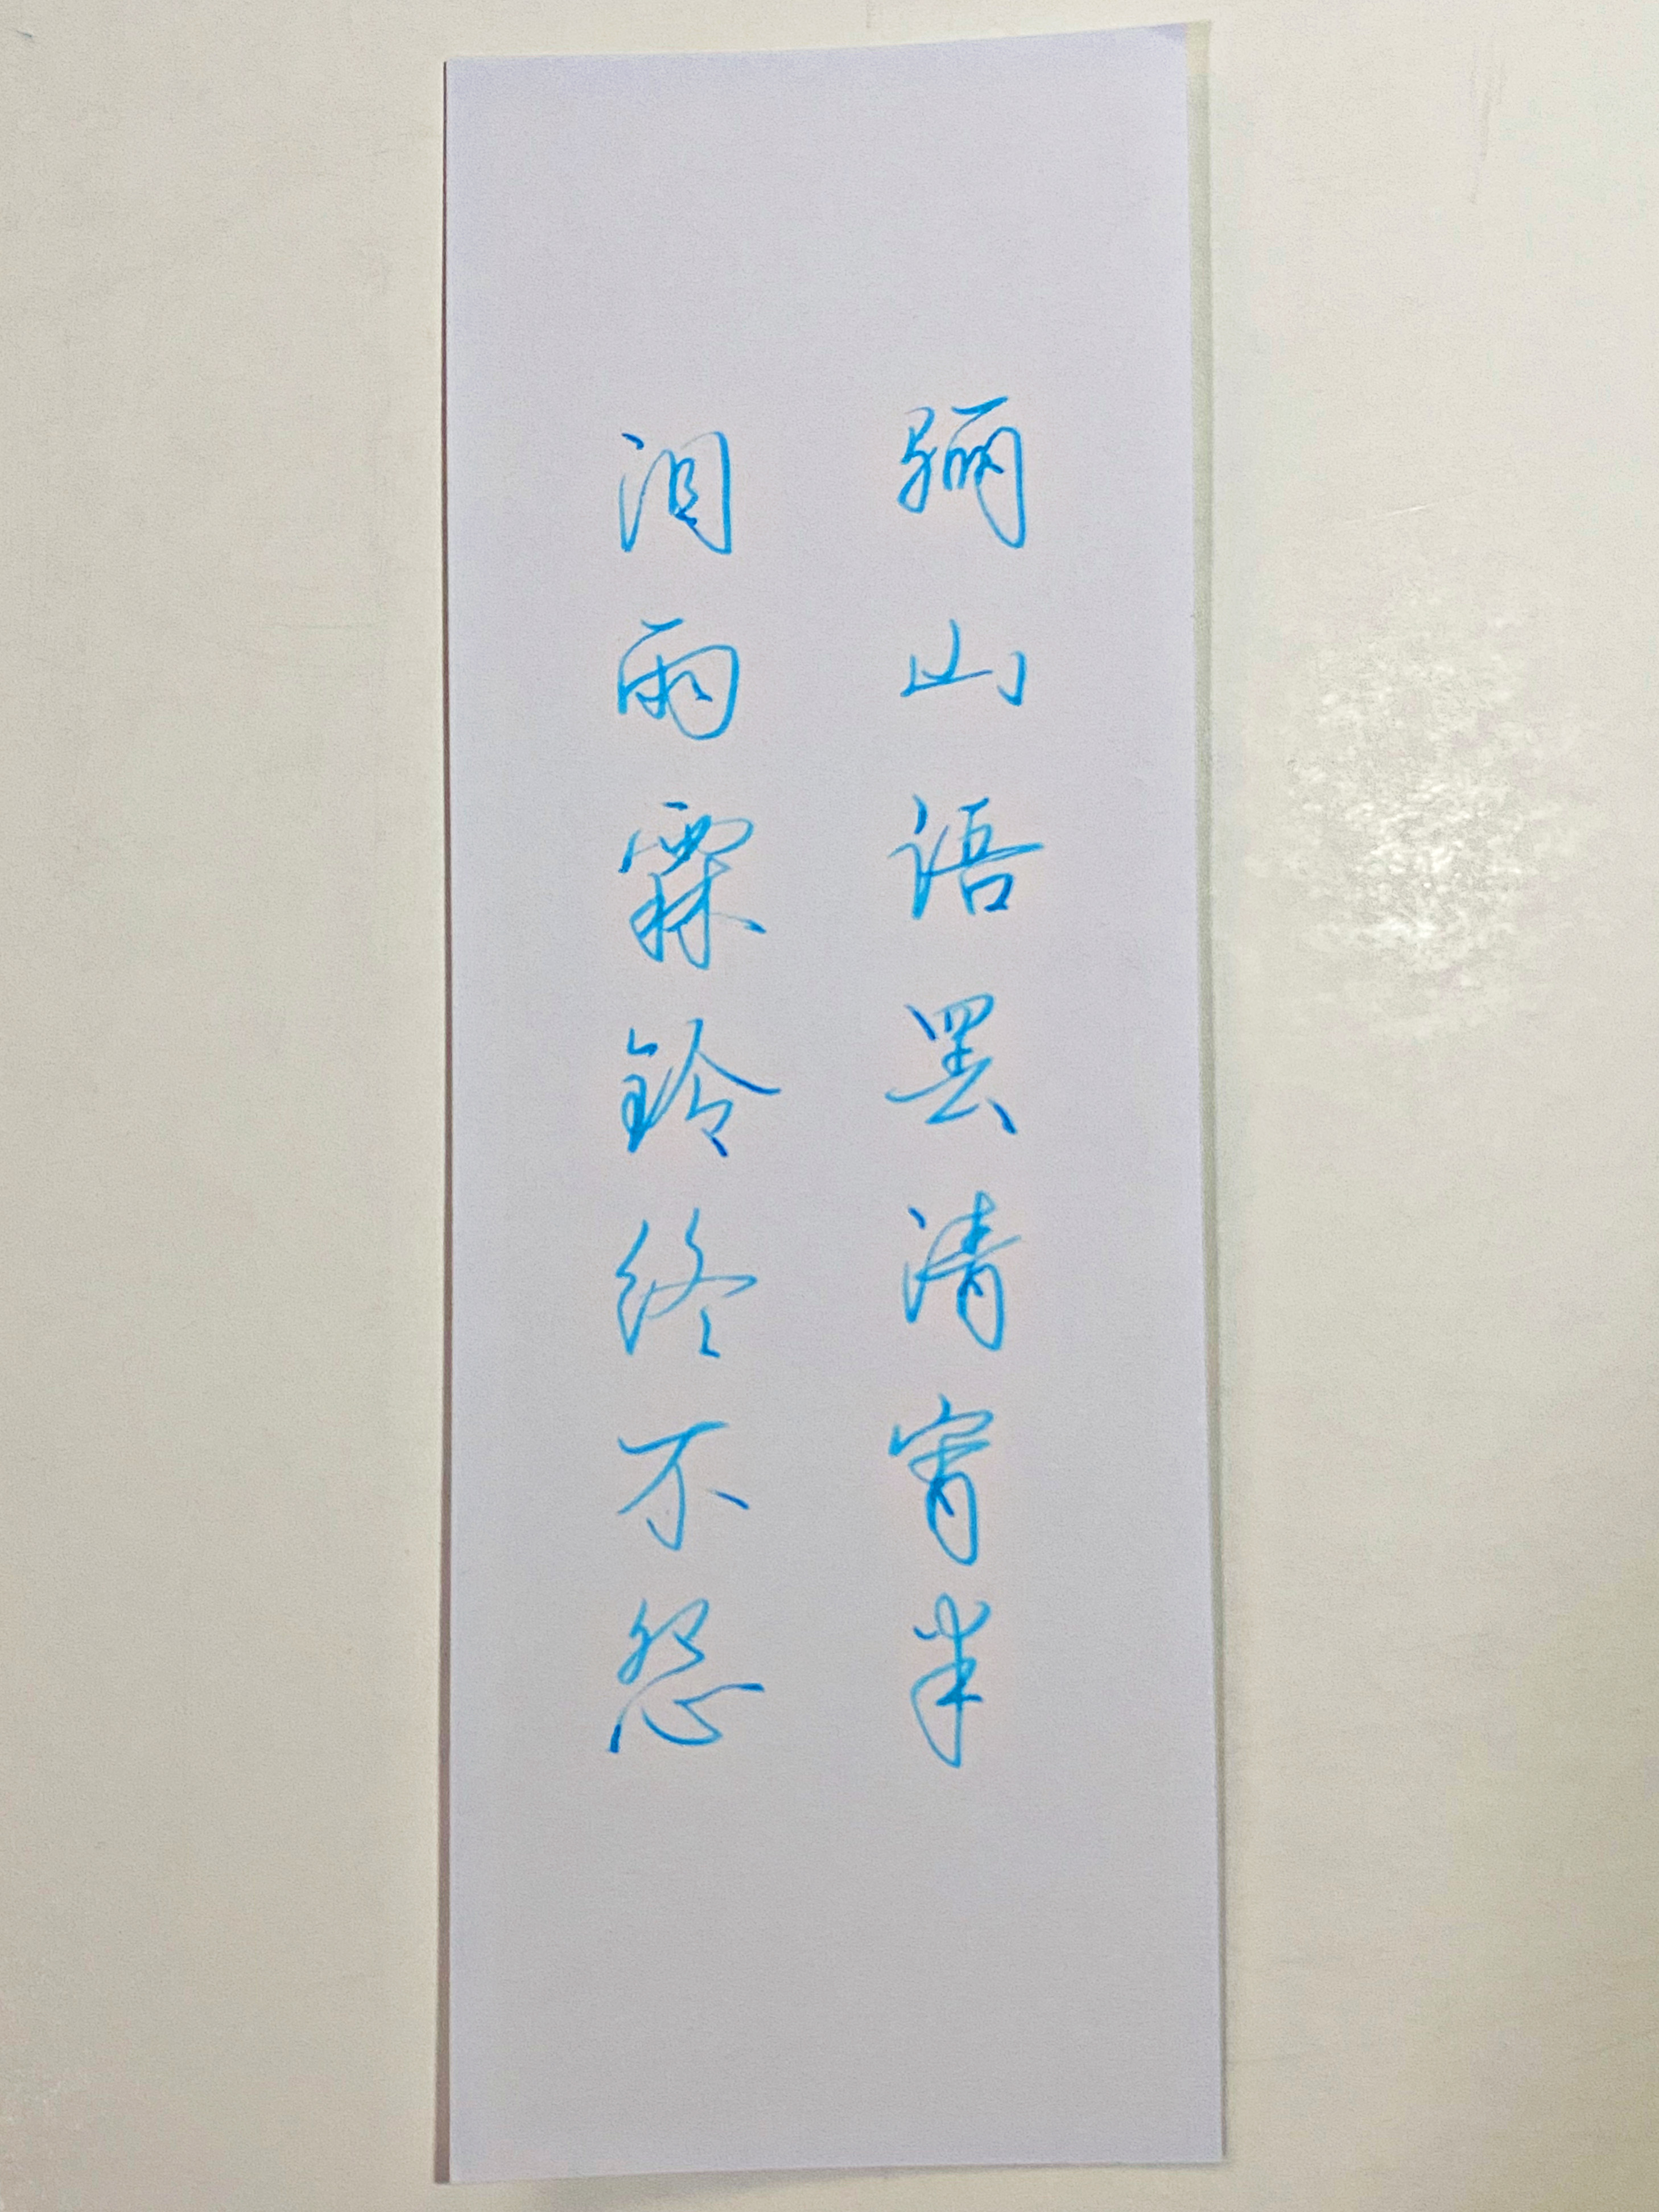 骊山语罢清宵半
泪雨霖铃终不怨